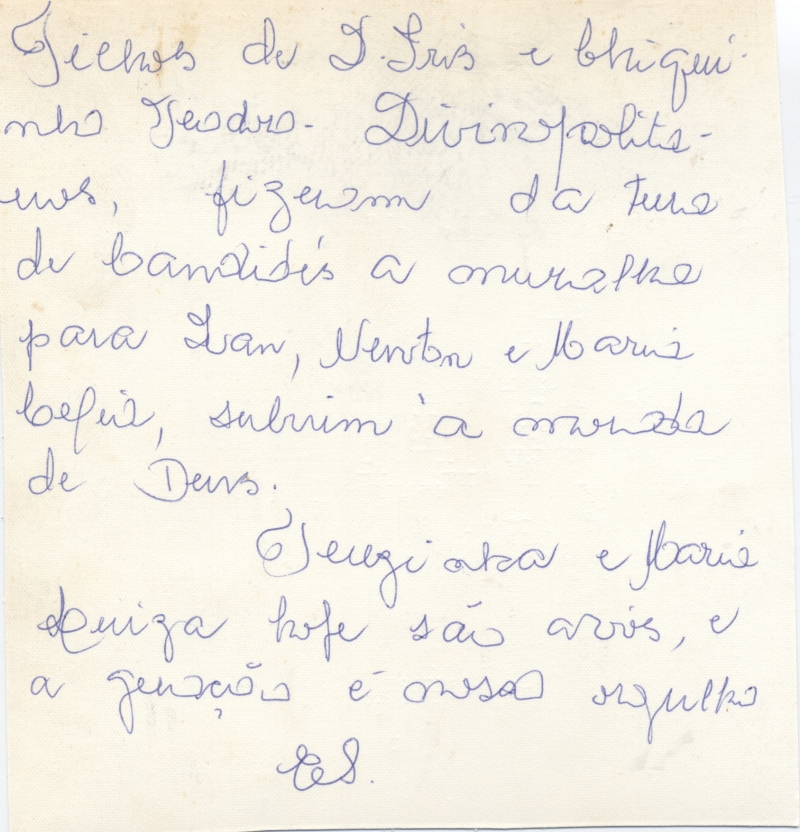 Filhos de D. Iris e Chiqui-
nho Teodro. Divinopolita-
nos, fizeram da terra
de Candidés a muralha
para Ivan, Newton e Maria
Célia, subirem à morada
de Deus.
Terezinha e Maria
Luiza hoje são avós, e
a geração é nosso orgulho